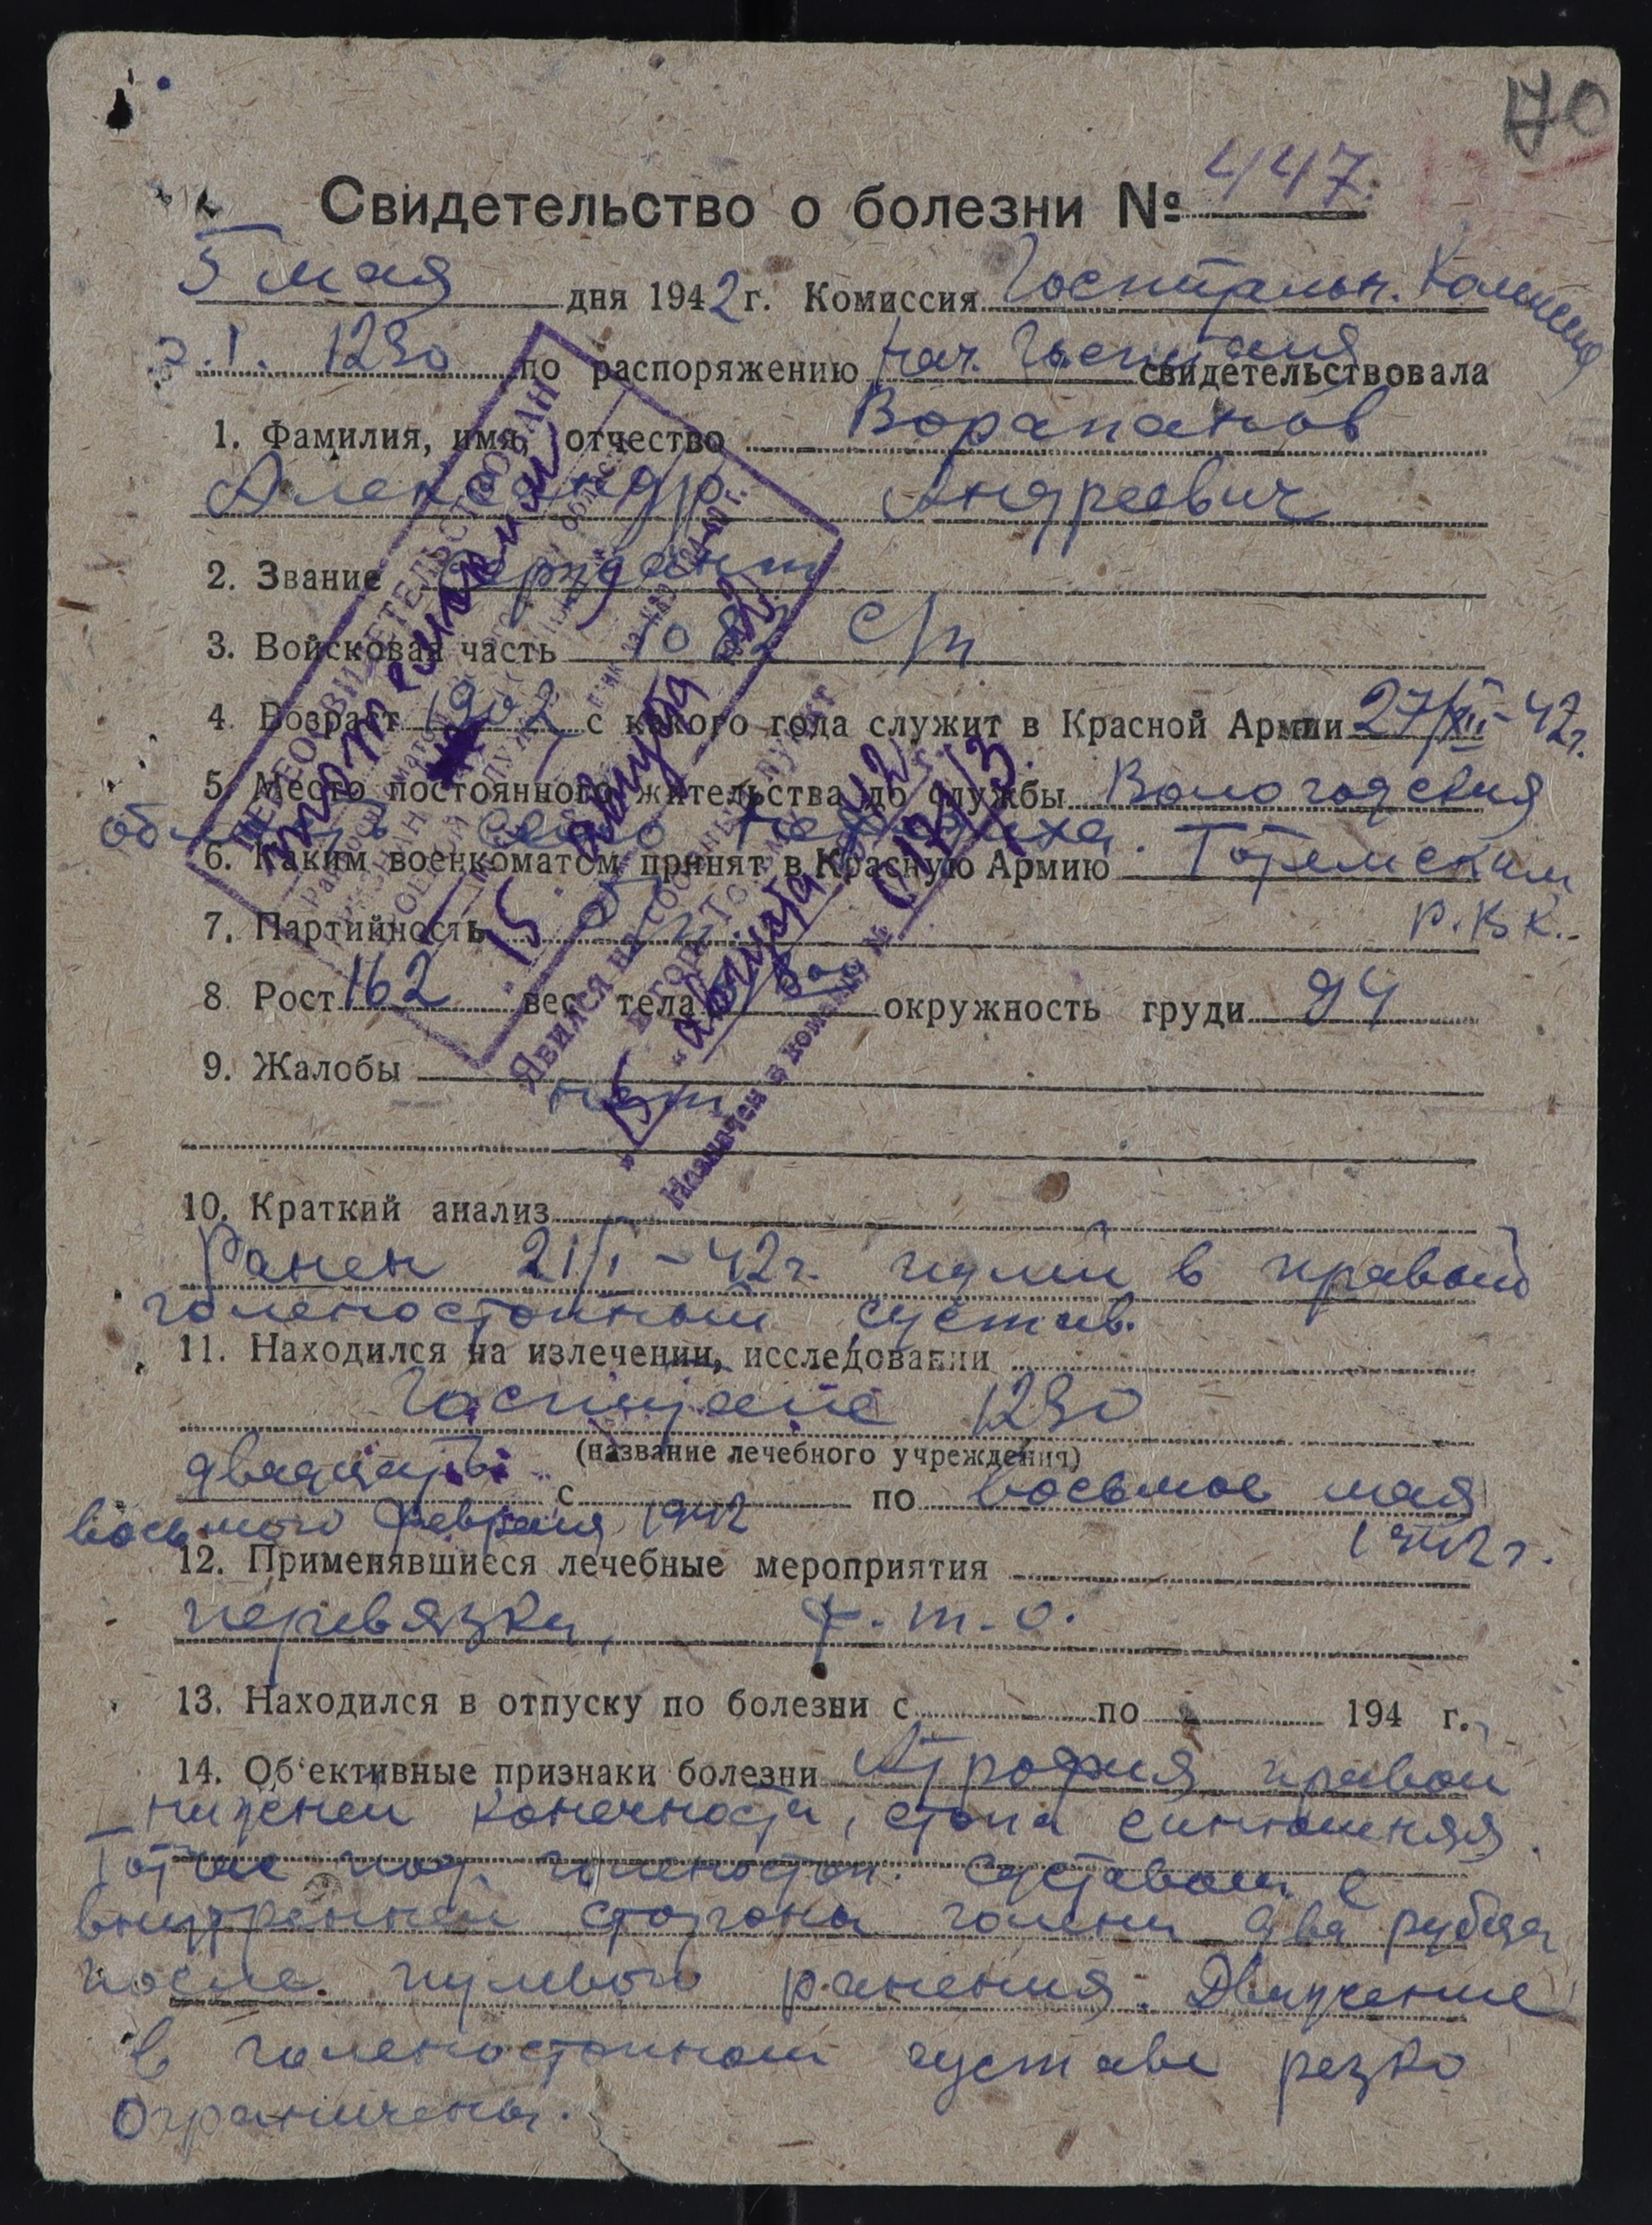 70
Свидетельство о болезни № 447
5 мая дня 1942 г. Комиссия Госпитальн.
1230 по распоряжению нач. Госпиталя свидетельствовала
1. Фамилия, имя, отчество Ворапанов
Александр Андреевич
2. Звание Сержант
3. Войсковая часть 1082 с/п
4. Возраст 1902 с какого года служит в Красной Армии 27/XII-42г.
5. Место постоянного жительства до службы Вологодская
область село
6. Каким военкоматом принят в Красную Армию Тотемским
Р.В.К.
7. Партийность
8. Рост 162 вес тела окружность груди 94
9. Жалобы нет
10. Краткий анализ
Ранен 21/I-42г. пулей в правый
голеностопный сустав.
11. Находился на излечении, исследовании
Госпитале 1230
(название лечебного учреждения)
двадцать
с по восьмое мая
восьмого февраля 1942 1942г.
12. Применявшиеся лечебные мероприятия
перевязки, ф.т.о.
13. Находился в отпуску по болезни с по 194 г.
14. Об'ективные признаки болезни Атрофия правой
нижней конечности, стопа синюшняя.
Тотчас над голеностоп. суставом с
внутренней стороны голени два рубца
после пулевого ранения. Движение
в голеностопном суставе резко
ограничены.
ПЕРЕОСВИДЕТЕЛЬСТВОВАН
15 августа 42
Явился на сборный пункт
15 августа 42 г.
Назначен в команду № 1313